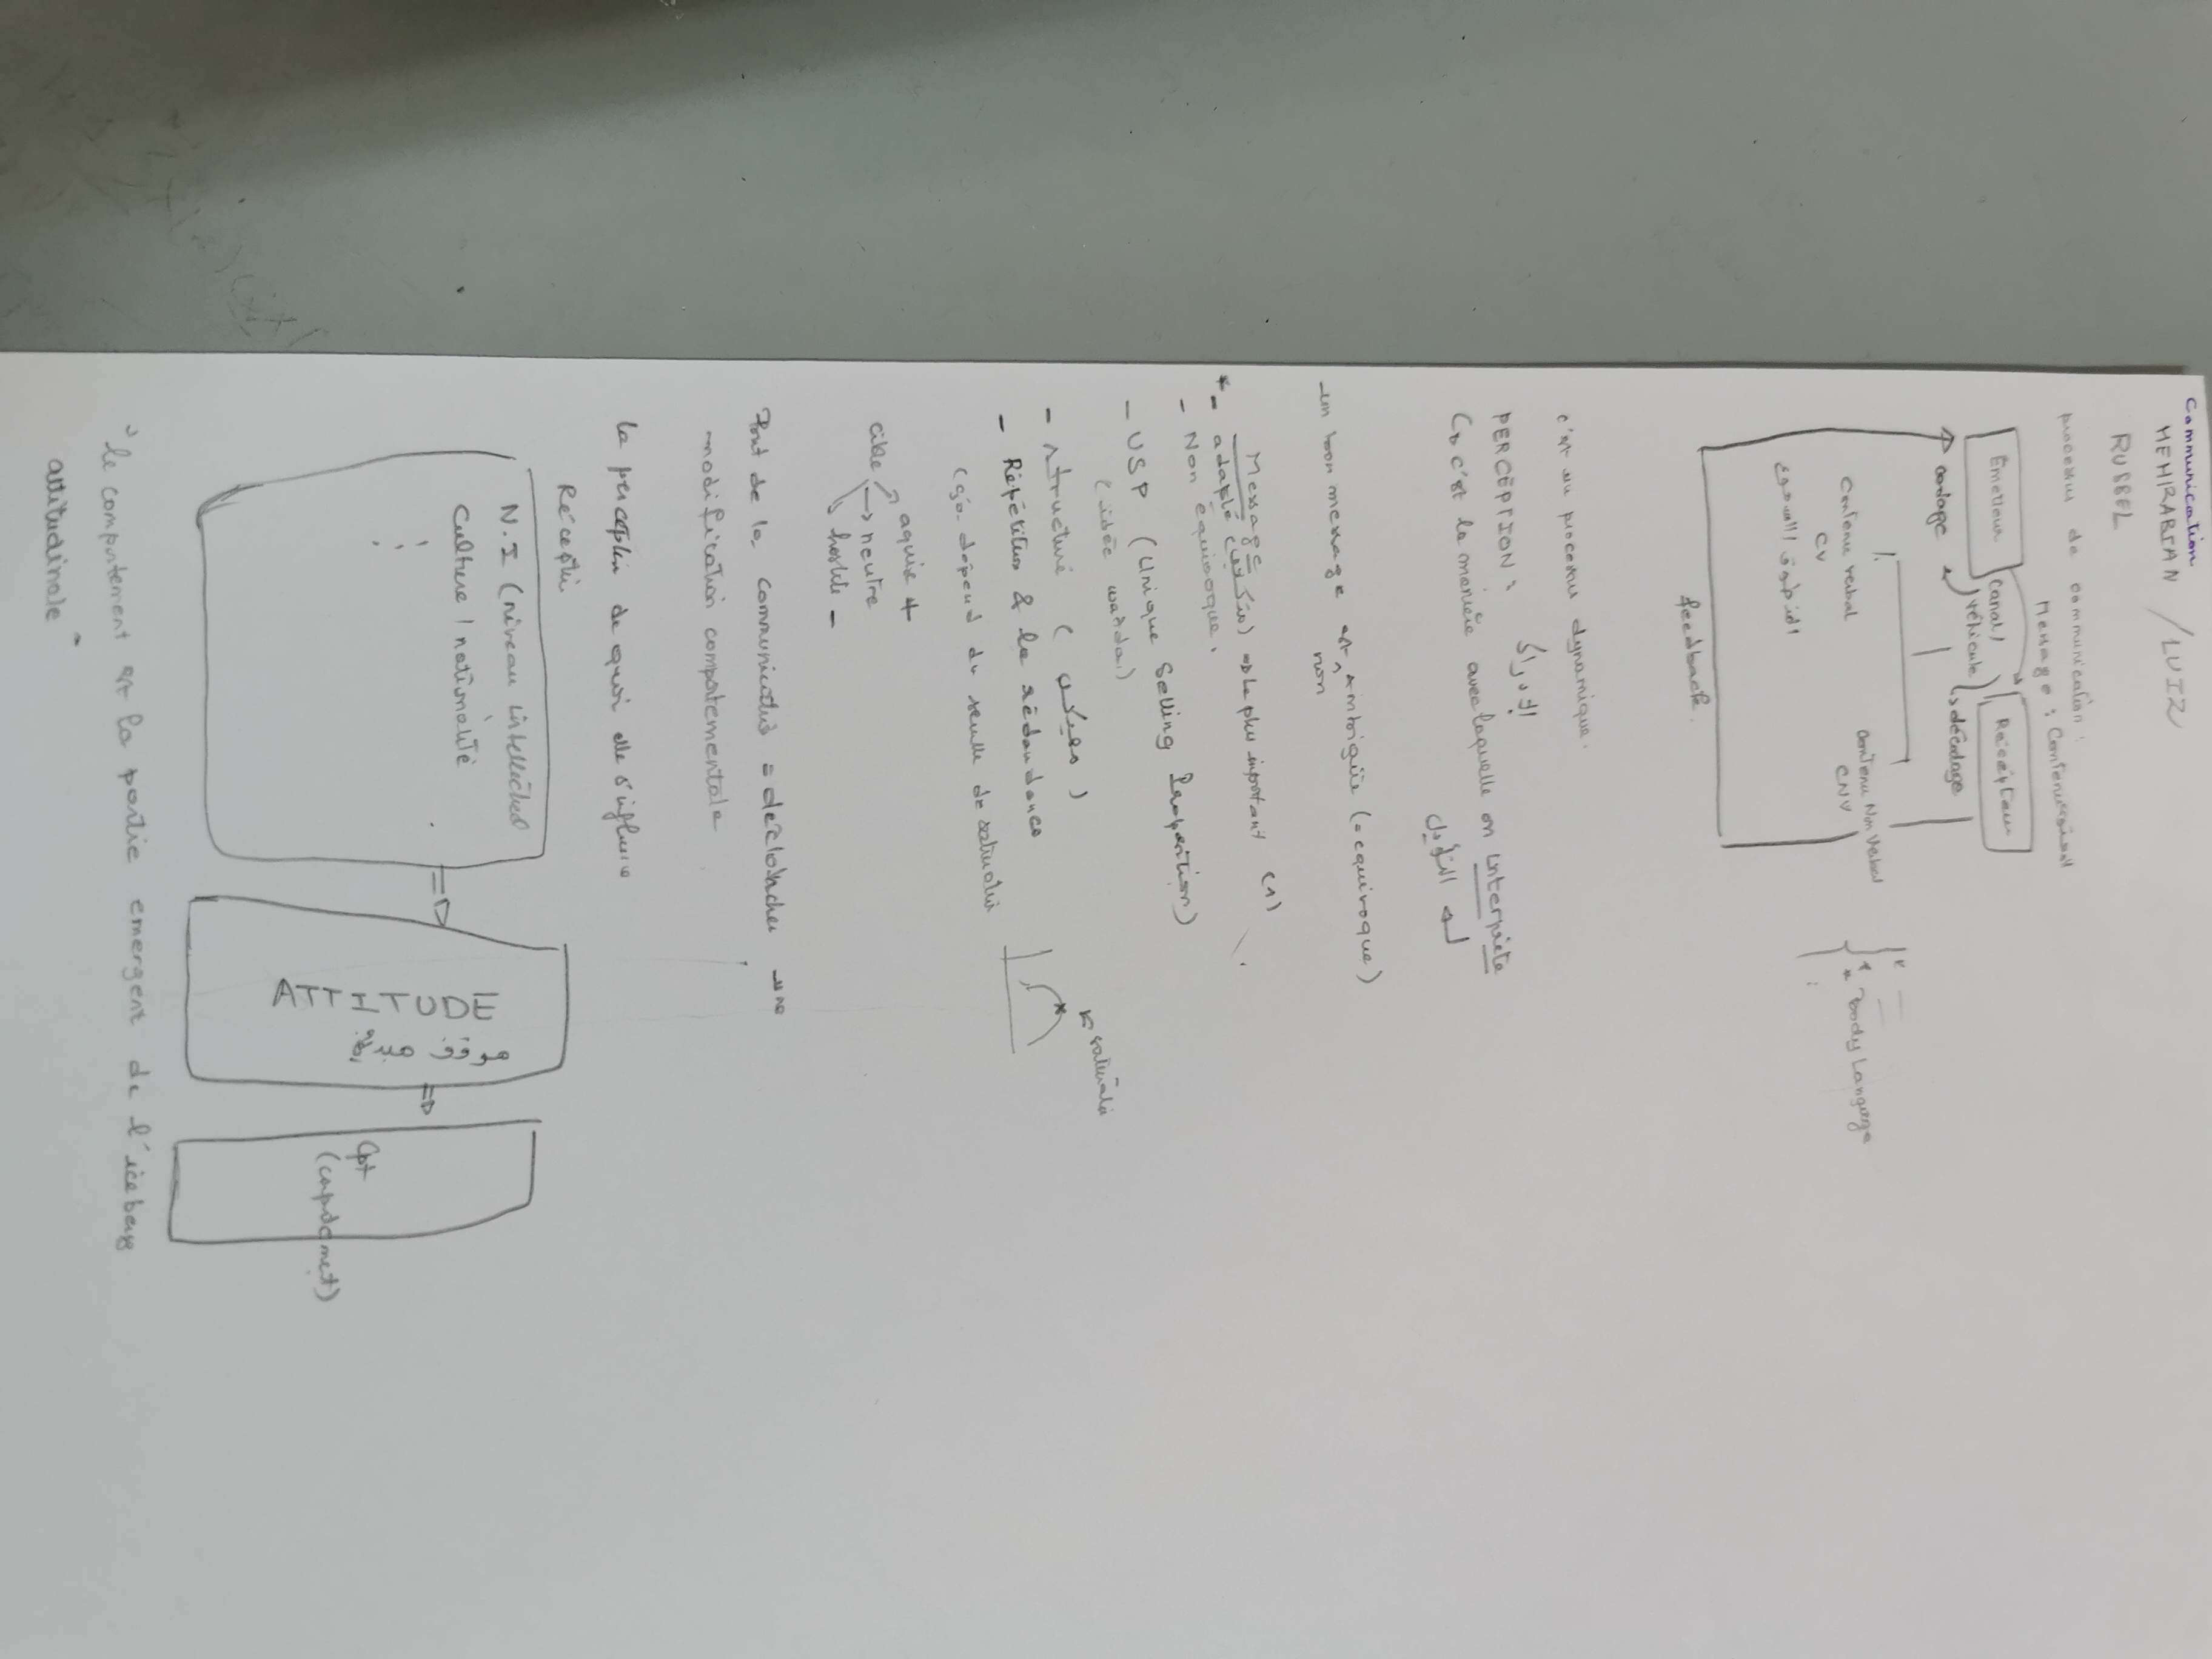 Communication
MEHRABIAN / LUIZ
RUSSEL
processus de communication :
Message :
Émetteur
canal /
véhicule
Récepteur
codage
décodage
Contenu verbal
CV
contenu Non Verbal
CNV
* Body Language
feedback
c'est un processus dynamique.
PERCEPTION :
c'est la manière avec laquelle on interprète
- un bon message est non Ambigüe (= equivoque)
Message
* - adapté ( ) => le plus important (1)
- Non equivoque,
- USP (Unique Selling Proposition)
(idée
- structuré ( )
- Répétition & la rédondance
dépend du seuil de saturation
saturation
cible
aquise +
neutre
hostile -
But de la communication = déclencher une
modification comportementale
la perception de quoi elle s'influence
Réception
N.I (niveau intellectuel
Culture / nationalité
ATTITUDE
Cpt
(comportement)
" le comportement est la partie emergent de l'iceberg
attitudinale "